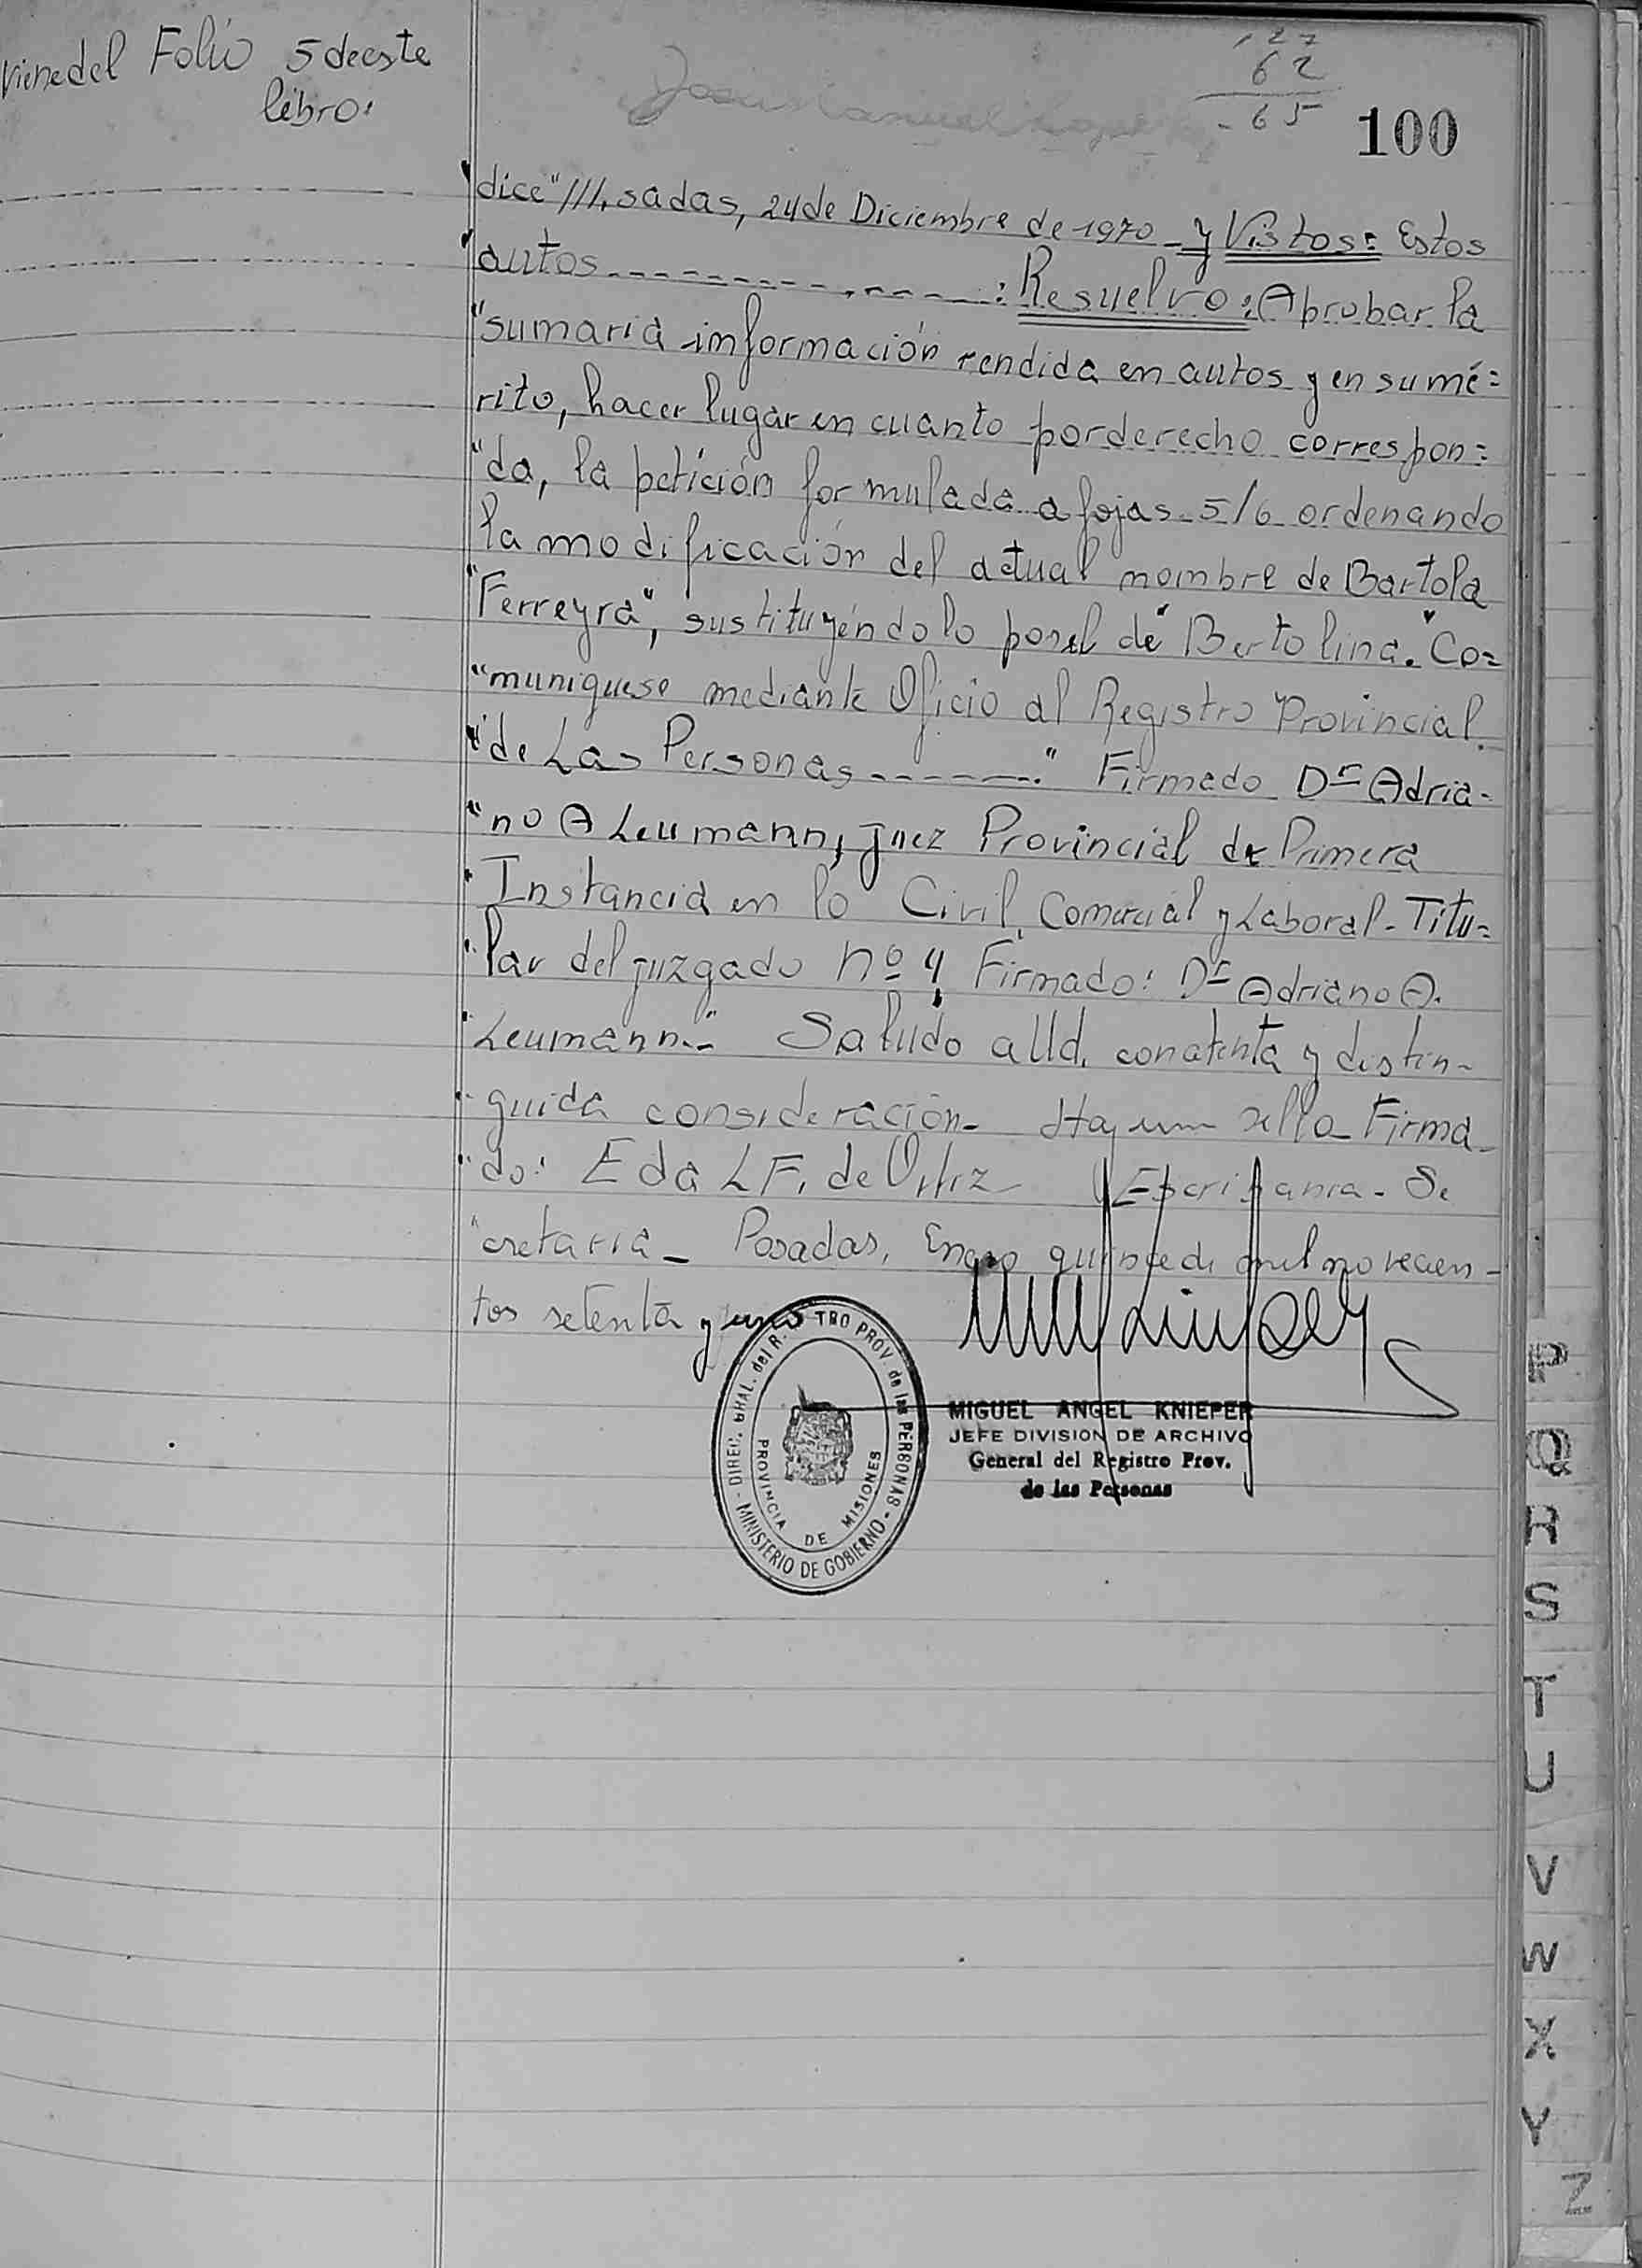 viene del Folio 5 de este
libro:
127
62
- 65
100
"dice" ///. sadas, 24 de Diciembre de 1970 - y Vistos: Estos
"autos ---------------: Resuelvo: Aprobar la
"sumaria información rendida en autos y en sumé=
rito, hacer lugar en cuanto por derecho correspon=
"da, la petición formulada a fojas 5/6 ordenando
la modificación del actual nombre de Bartola
"Ferreyra", sustituyéndolo por el de "Bertolina." Co=
"muniquese mediante Oficio al Registro Provincial.
"de Las Personas -------." Firmado Dr Adria-
"no A Leumann, Juez Provincial de Primera
" Instancia en lo Civil, Comercial y Laboral - Titu=
" lar del juzgado nº 4, Firmado: Dr Adriano A.
" Leumann.-" Saludo a Ud. con atenta y distin-
" guida consideración - Hay un sello Firma
" do: Eda L F. de Escribania - Se
" cretaria - Posadas, Enero quince de mil novecien-
tos setenta y uno
DIREC. GRAL. del R. TRO PROV. de las PERSONAS - MINISTERIO DE GOBIERNO -
PROVINCIA DE MISIONES
MIGUEL ANGEL KNIEPER
JEFE DIVISION DE ARCHIVO
General del Registro Prov.
de las Personas
P
Q
R
S
T
U
V
W
X
Y
Z